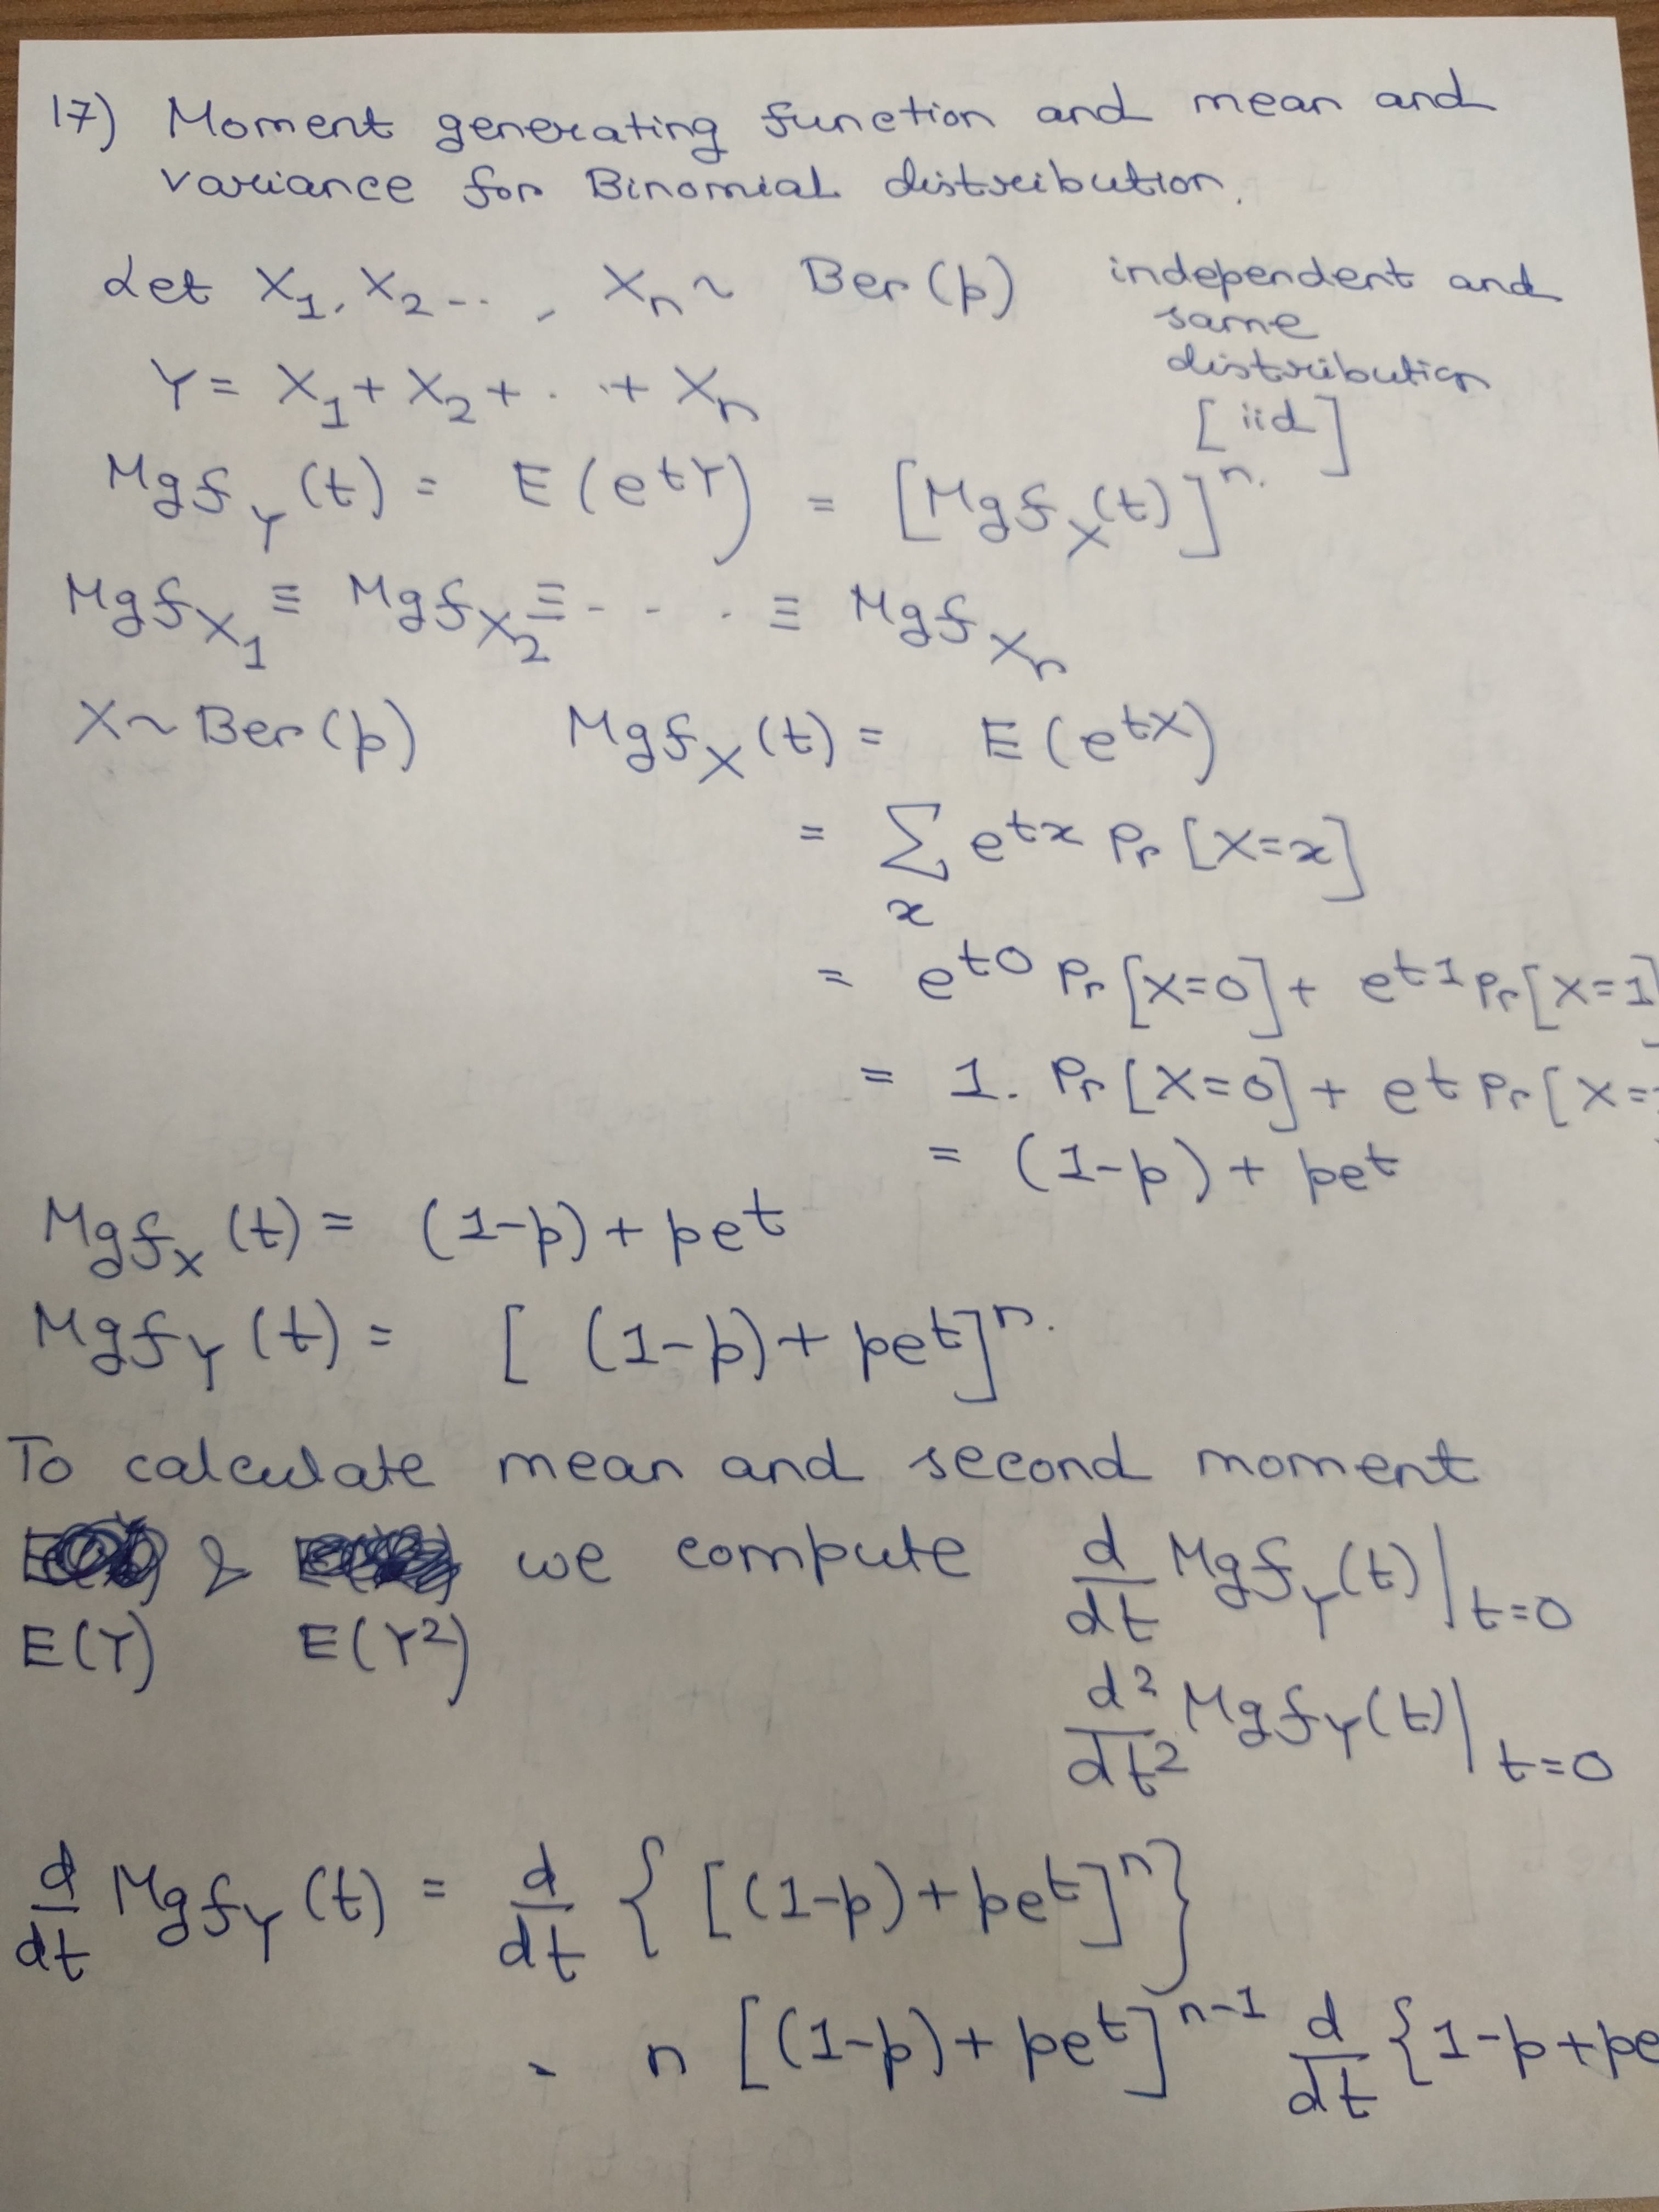 17) Moment generating function and mean and
variance for Binomial distribution.
Let X₁, X₂ -- , Xₙ ~ Ber (p) independent and
same
distribution
[iid]
Y = X₁ + X₂ + . . + Xₙ
Mgf_Y (t) = E (e^{tY}) = [Mgf_X(t)]^n.
Mgf_{X₁} ≡ Mgf_{X₂} ≡ - - . ≡ Mgf_{Xₙ}
X ~ Ber (p) Mgf_X (t) = E (e^{tX})
= ∑_x e^{tx} Pr [X=x]
= e^{t0} Pr [X=0] + e^{t1} Pr [X=1]
= 1. Pr [X=0] + e^t Pr [X=
= (1-p) + pe^t
Mgf_X (t) = (1-p) + pe^t
Mgf_Y (t) = [ (1-p) + pe^t]^n.
To calculate mean and second moment
& we compute d/dt Mgf_Y (t) |_{t=0}
E(Y) E(Y²)
d²/dt² Mgf_Y (t) |_{t=0}
d/dt Mgf_Y (t) = d/dt { [(1-p) + pe^t]^n }
= n [(1-p) + pe^t]^{n-1} d/dt {1-p+pe